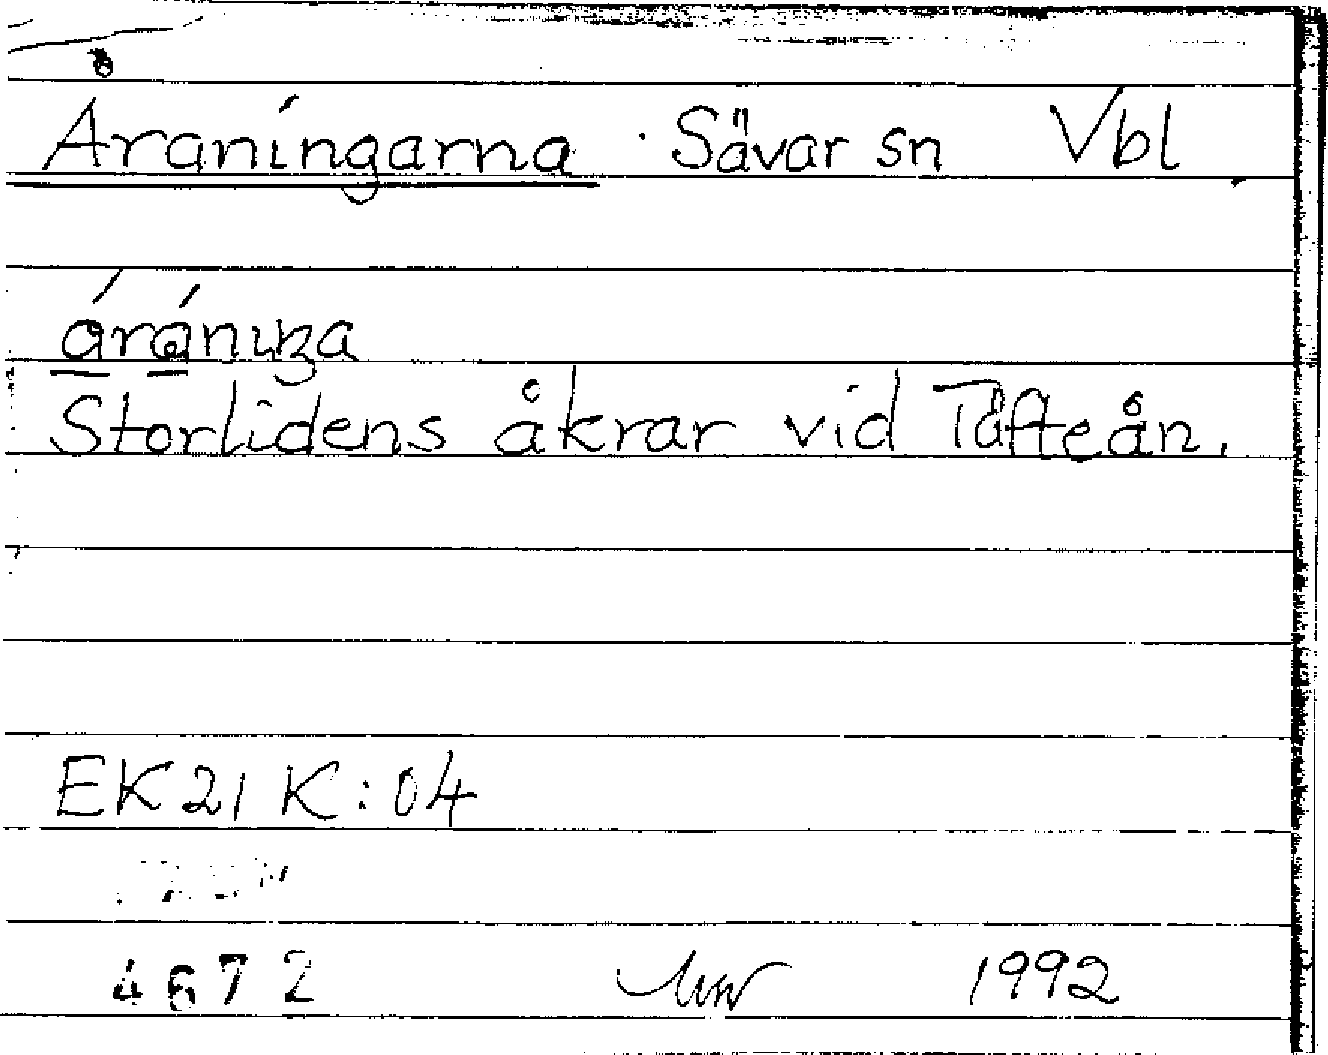 Åraningarna Sävar sn Vbl
Storlidens åkrar vid Täfteån.
EK 21 K:04
4672 1992